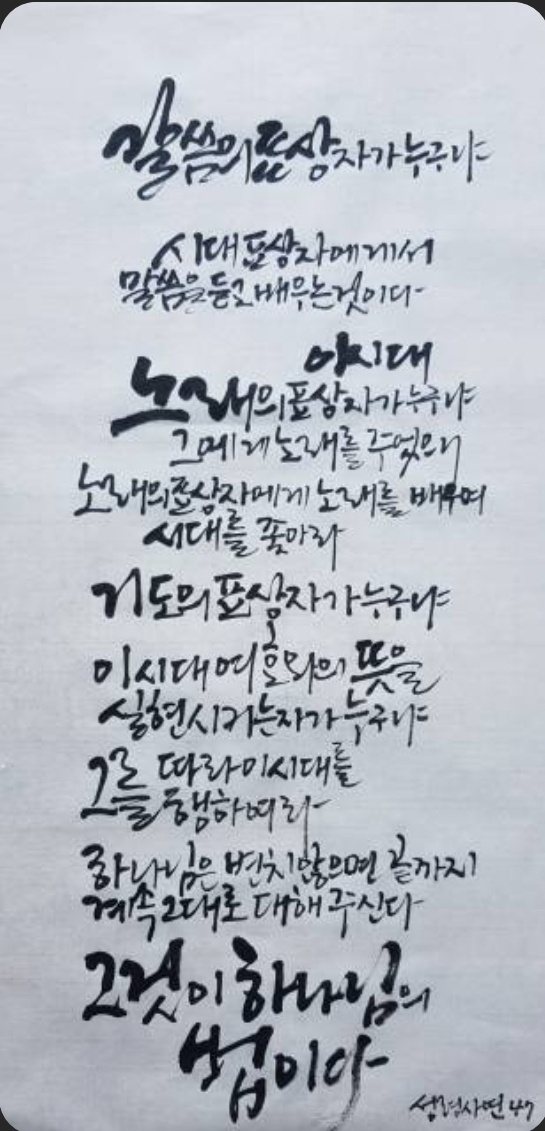 말씀의 표상자가 누구냐
시대 표상자에게서
말씀을 듣고 배우는 것이다
이 시대
노래의 표상자가 누구냐
그에게 노래를 주었으니
노래의 표상자에게 노래를 배우며
시대를 쫓아라
기도의 표상자가 누구냐
이 시대 여호와의 뜻을
실현시키는 자가 누구냐
그를 따라 이 시대를
동행하여라
하나님은 변치 않으면 끝까지
계속 그대로 대해 주신다
그것이 하나님의
법이다
성령사연 47